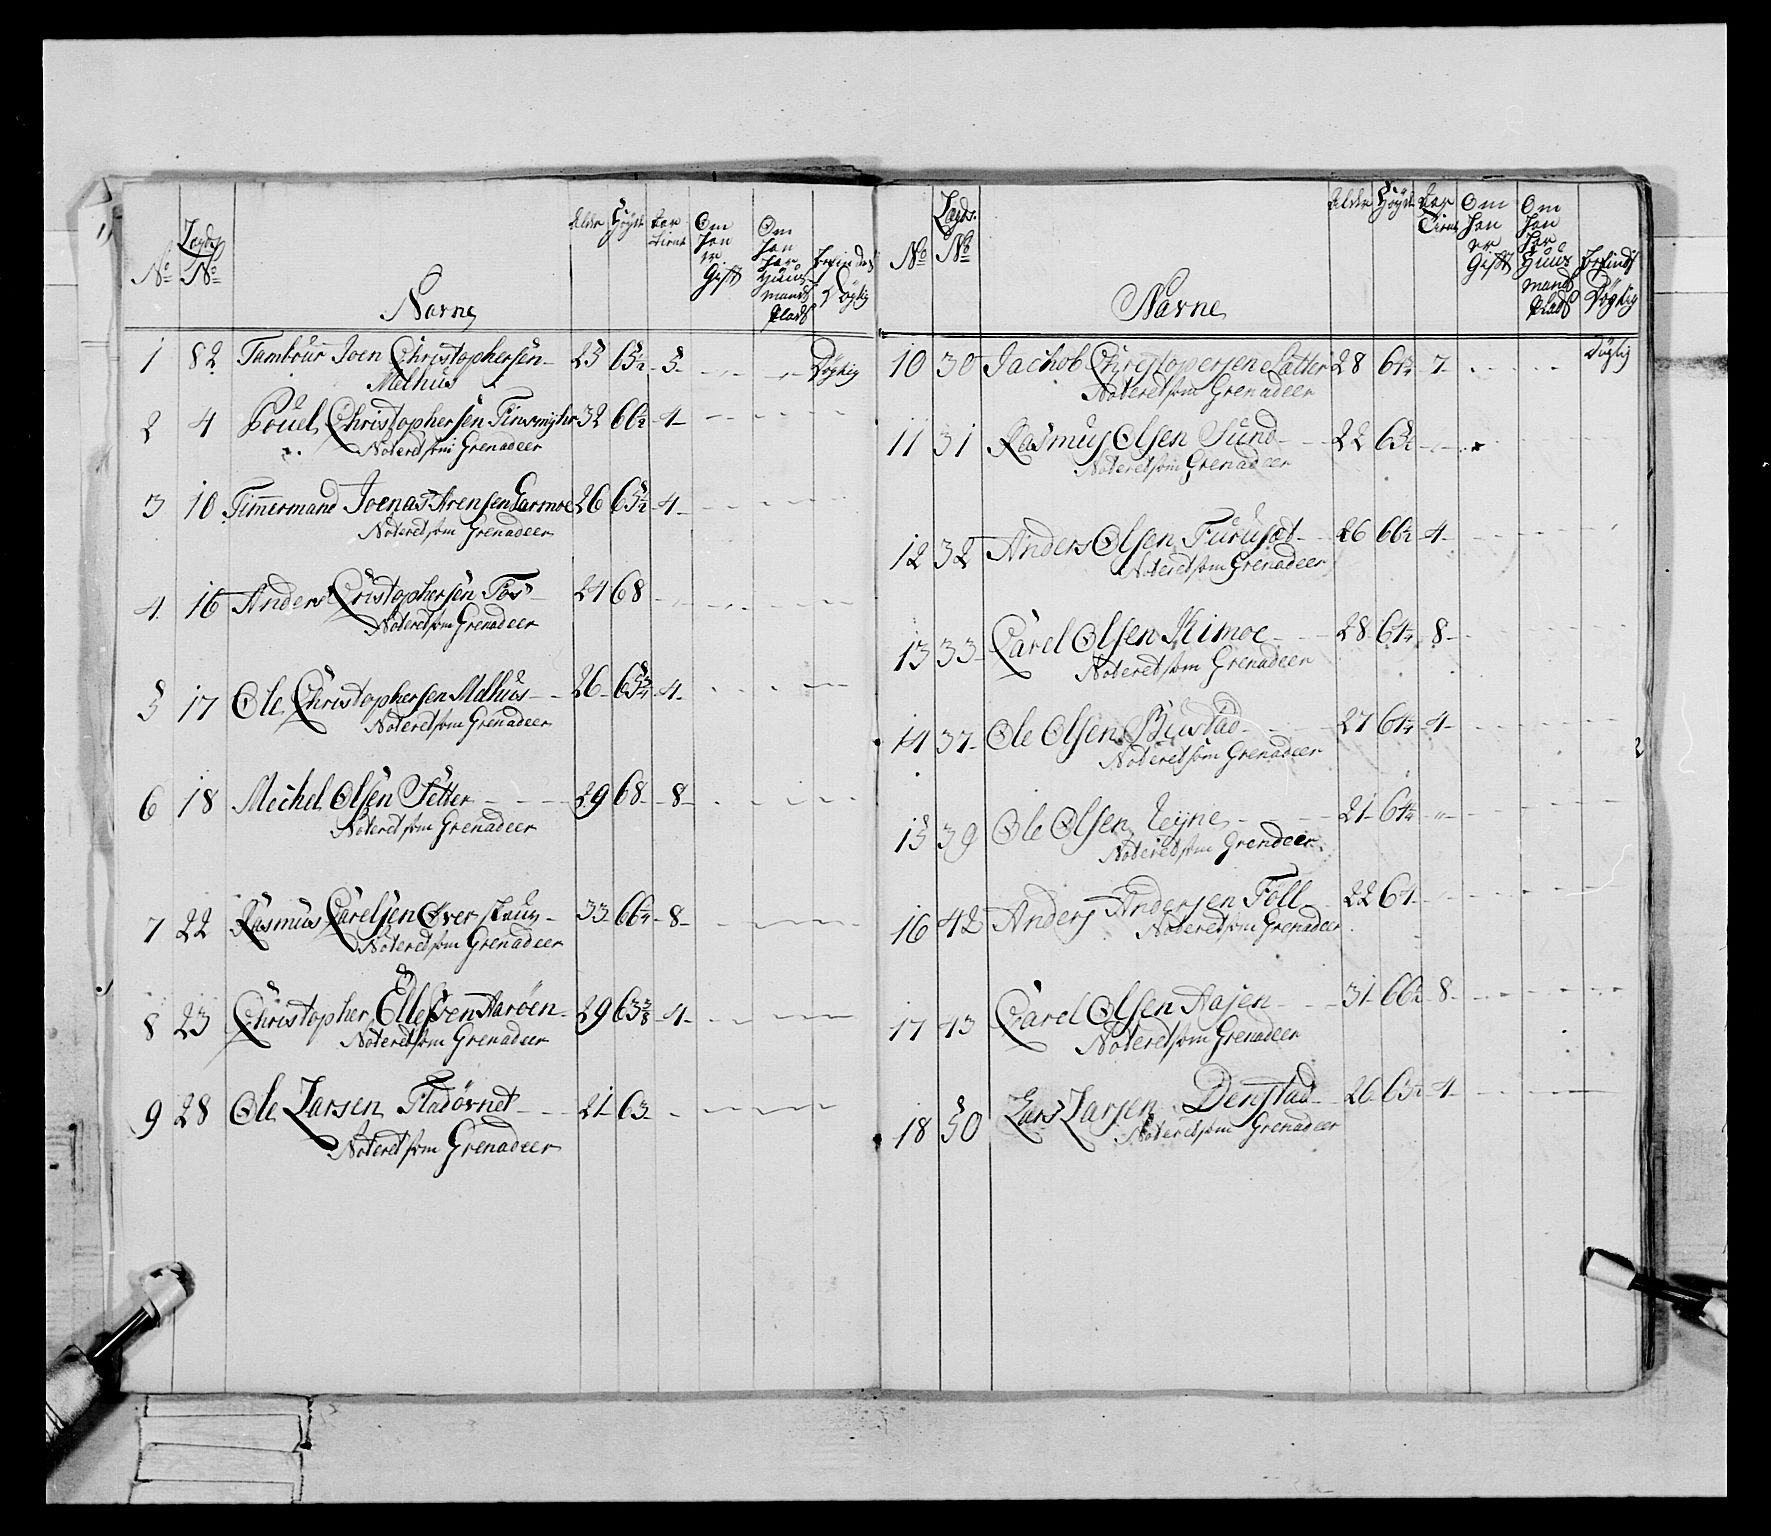 No Legds No Navne Alder Høyde har Tient Om han er Gift Om han har Huus mands Plads befindes Dygtig
1 82 Tambour Joen Christophersen 25 65½ 5 Dygtig
Melhus
2 4 Pouel Christophersen 32 66½ 4
Noteret som Grenadeer
3 10 Timmermand Joenas Arensen Garmoe 26 65½ 4
Noteret som Grenadeer
4 16 Anders Cristophersen Fos 24 68
Noteret som Grenadeer
5 17 Ole Christophersen Melhus 26 65¾ 4
Noteret som Grenadeer
6 18 Mechel Olsen Setter 29 68 8
Noteret som Grenadeer
7 22 Rasmus Carelsen Øver 33 66¼ 8
Noteret som Grenadeer
8 23 Christopher Ellefsen Aarøen 29 63⅜ 4
Noteret som Grenadeer
9 28 Ole Larsen Fladørnet 21 63
Noteret som Grenadeer
No Legds No Navne Alder Høyde har Tient Om han er Gift Om han har Huus mands Plads befinds Dygtig
10 30 Jachob Chrestopersen Satter 28 64¼ 7 Dygtig
Noteret som Grenadeer
11 31 Rasmus Olsen Sund 22 65½
Noteret som Grenadeer
12 32 Anders Olsen Furuset 26 66½ 4
Noteret som Grenadeer
13 33 Carel Olsen Kimoe 28 64¼ 8
Noteret som Grenadeer
14 37 Ole Olsen Biustad 27 64¼ 4
Noteret som Grenadeer
15 39 Ole Olsen 21 64¼
Noteret som Grendeer
16 42 Anders Andersen Föll 22 64
Noteret som Grenadeer
17 43 Carel Olsen Aasen 31 66½ 8
Noteret som Grenadeer
18 50 Lars Larsen Denstad 26 65½ 4
Noteret som Grenadeer